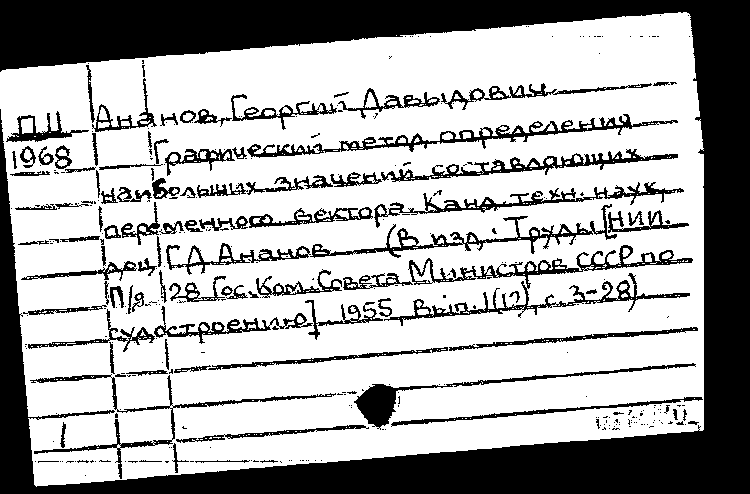 П II Ананов, Георгий Давыдович
1968 Графический метод определения
наибольших значений составляющих
переменного вектора. Канд. техн. наук,
доц. Г.Д. Ананов (В изд.: Труды [НИИ.
П/я 128 Гос. Ком. Совета Министров СССР по
судостроению]. 1955, Вып. 1(12), с. 3-28).
1